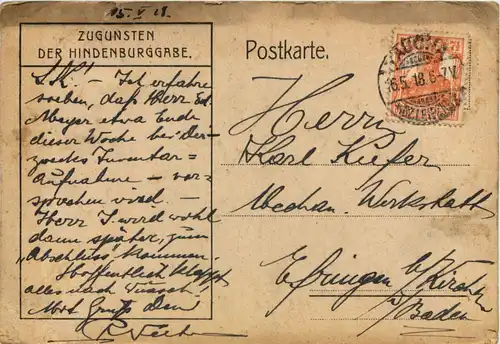 15. V 18.
ZUGUNSTEN
DER HINDENBURGGABE.
L. K! – Ich erfahre
soeben, daß Herr Ed.
Meyer etwa Ende
dieser Woche bei Dir
zwecks Inventar=
Aufnahme – vor-
sprechen wird. –
Herr J. wird wohl
dann später, zum
"Abschluß" kommen.
Hoffentlich klappt
alles nach Wunsch.
Mit Gruß Dein
Postkarte.
16.5.18. 6-7V.
Herrn
Karl Kiefer
Mechan. Werkstatt
Efringen b/Kirchen
i/Baden